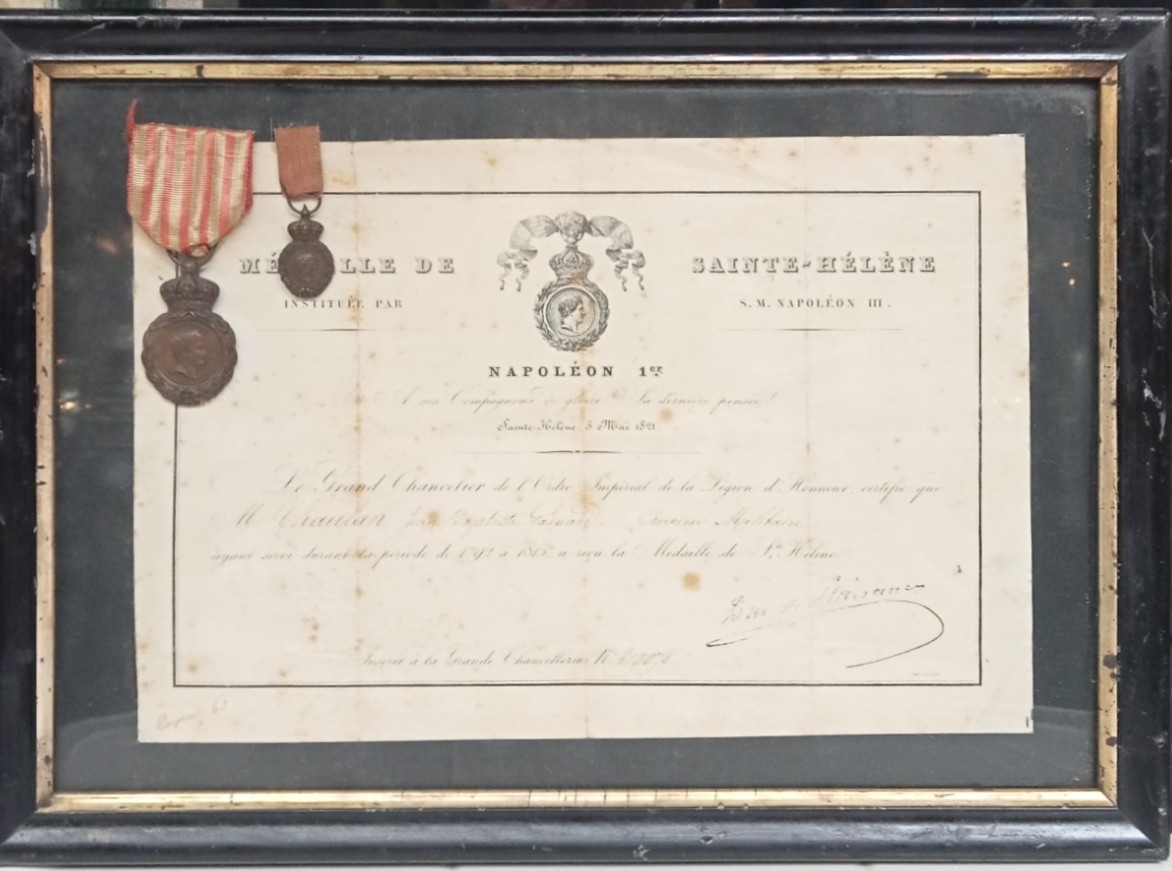 MÉ LLE DE SAINTE-HÉLÈNE
INSTITUÉE PAR S. M. NAPOLÉON III.
NAPOLÉON 1er
A ses Compagnons de gloire Sa dernière pensée!
Sainte-Hélène, 5 Mai 1821
Le Grand Chancelier de l'Ordre Impérial de la Légion d'Honneur, certifie que
M Jean Baptiste Ancien Militaire
ayant servi durant la période de 1792 à 1815, a reçu la Médaille de Ste Hélène.
Duc de
Inscrit à la Grande Chancellerie No